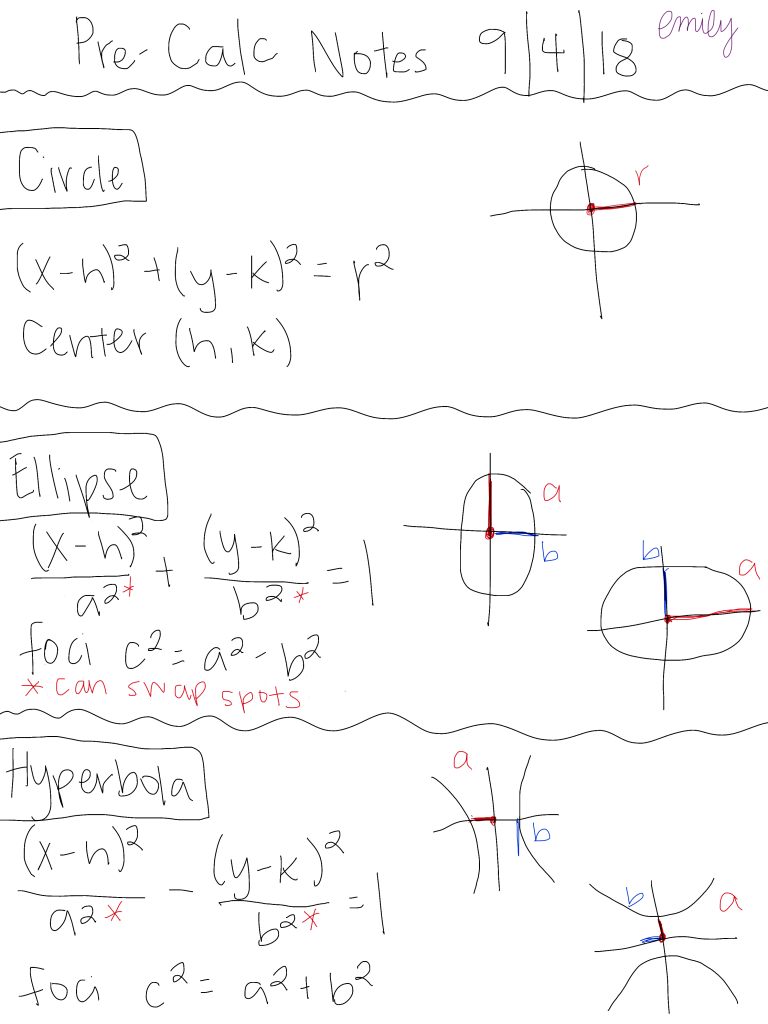 Pre-Calc Notes 9|4|18 emily
Circle
r
(x-h)² + (y-k)² = r²
Center (h,k)
Ellipse
(x-h)²/a²* + (y-k)²/b²* = 1
a
b
b
a
foci c² = a² - b²
* can swap spots
Hyperbola
a
b
(x-h)²/a²* - (y-k)²/b²* = 1
b
a
foci c² = a² + b²